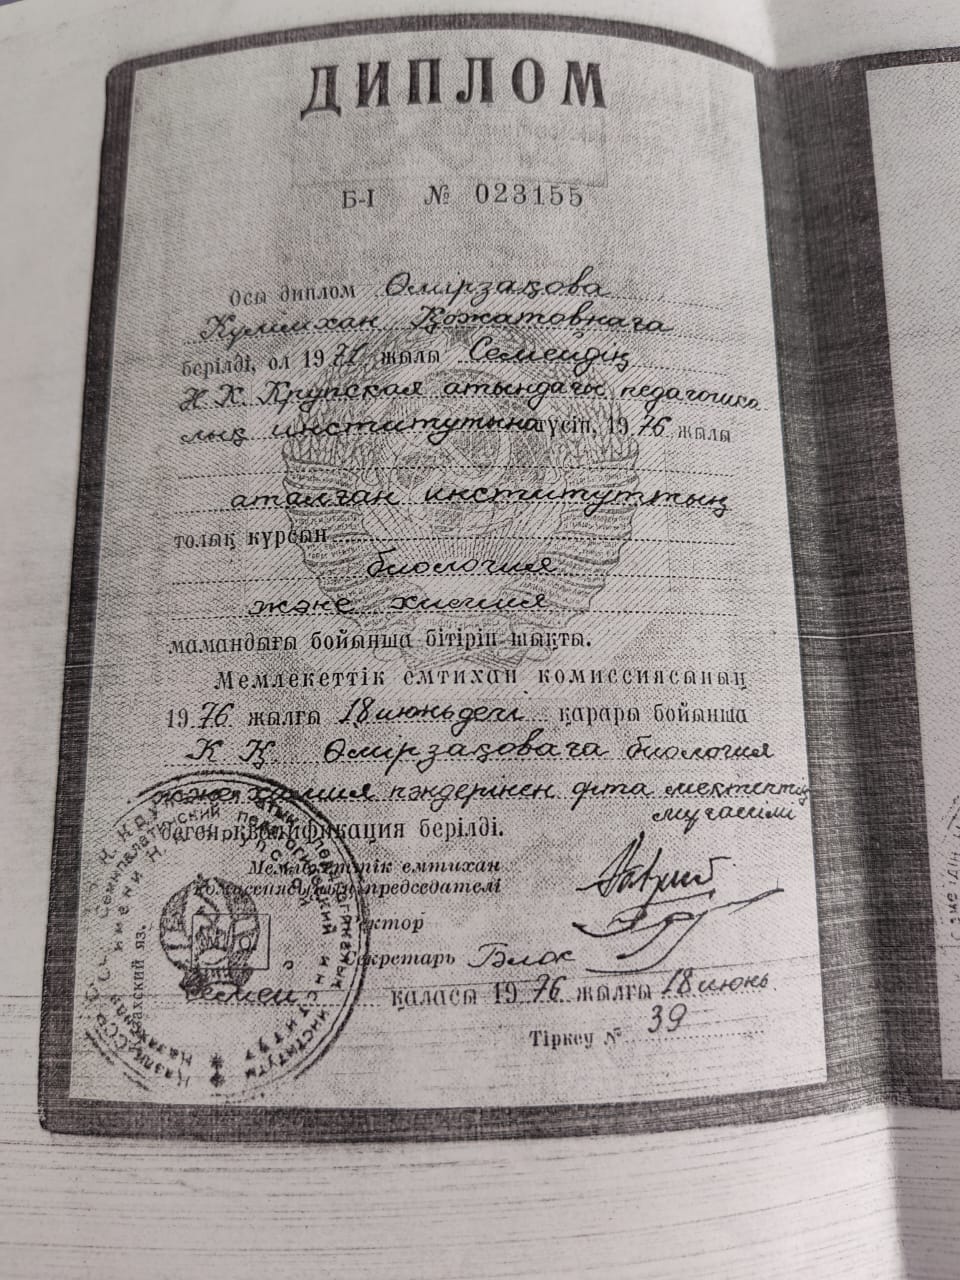 ДИПЛОМ
Б-I № 023155
Осы диплом Өмірзақова
Күлімхан Қожатовнаға
берілді, ол 1971 жылы Семейдің
Н. К. Крупская атындағы педагогика
лық институтына түсіп, 1976 жылы
аталған институттың
толық курсын
биология
және химия
мамандығы бойынша бітіріп шықты.
Мемлекеттік емтихан комиссиясының
1976 жылғы 18 июньдегі қарары бойынша
К. Қ. Өмірзақоваға биология
және химия пәндерінен орта мектептің
мұғалімі
деген квалификация берілді.
Мемлекеттік емтихан
комиссиясының председателі
Ректор
Секретарь
Семей қаласы 1976 жылғы 18 июнь
Тіркеу № 39
Казахский яз.